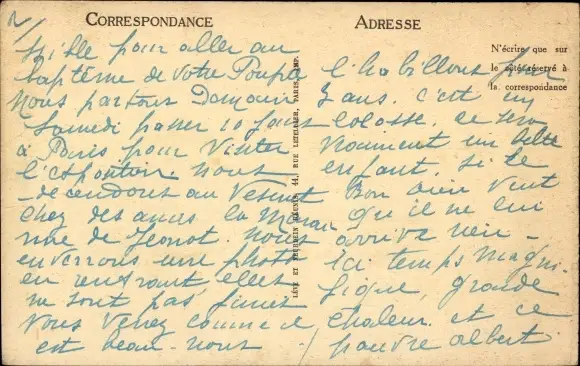 2/
CORRESPONDANCE
ADRESSE
N'écrire que sur
le côté réservé à
la correspondance
pour aller au
baptême de votre Poupée
nous partons Demain
Samedi passer 10 Jours
à Paris pour Visiter
nous
decendons au Vesinet
chez des amis la Marai
nne de Jeanot. nous
enverrons une photo
en rentrant, elles
ne sont pas finies
vous verrez comme il
est beau. nous
l'habillons sur
3 ans. c'est un
colosse.
enfant. Si le
Bon Dieu veut
qu'il ne lui
arrive rien -
Ici temps Magni-
fique, grande
chaleur. et ce
pauvre Albert
LÉVY ET NEURDEIN RÉUNIS, 44, RUE LETELLIER, PARIS, IMP.